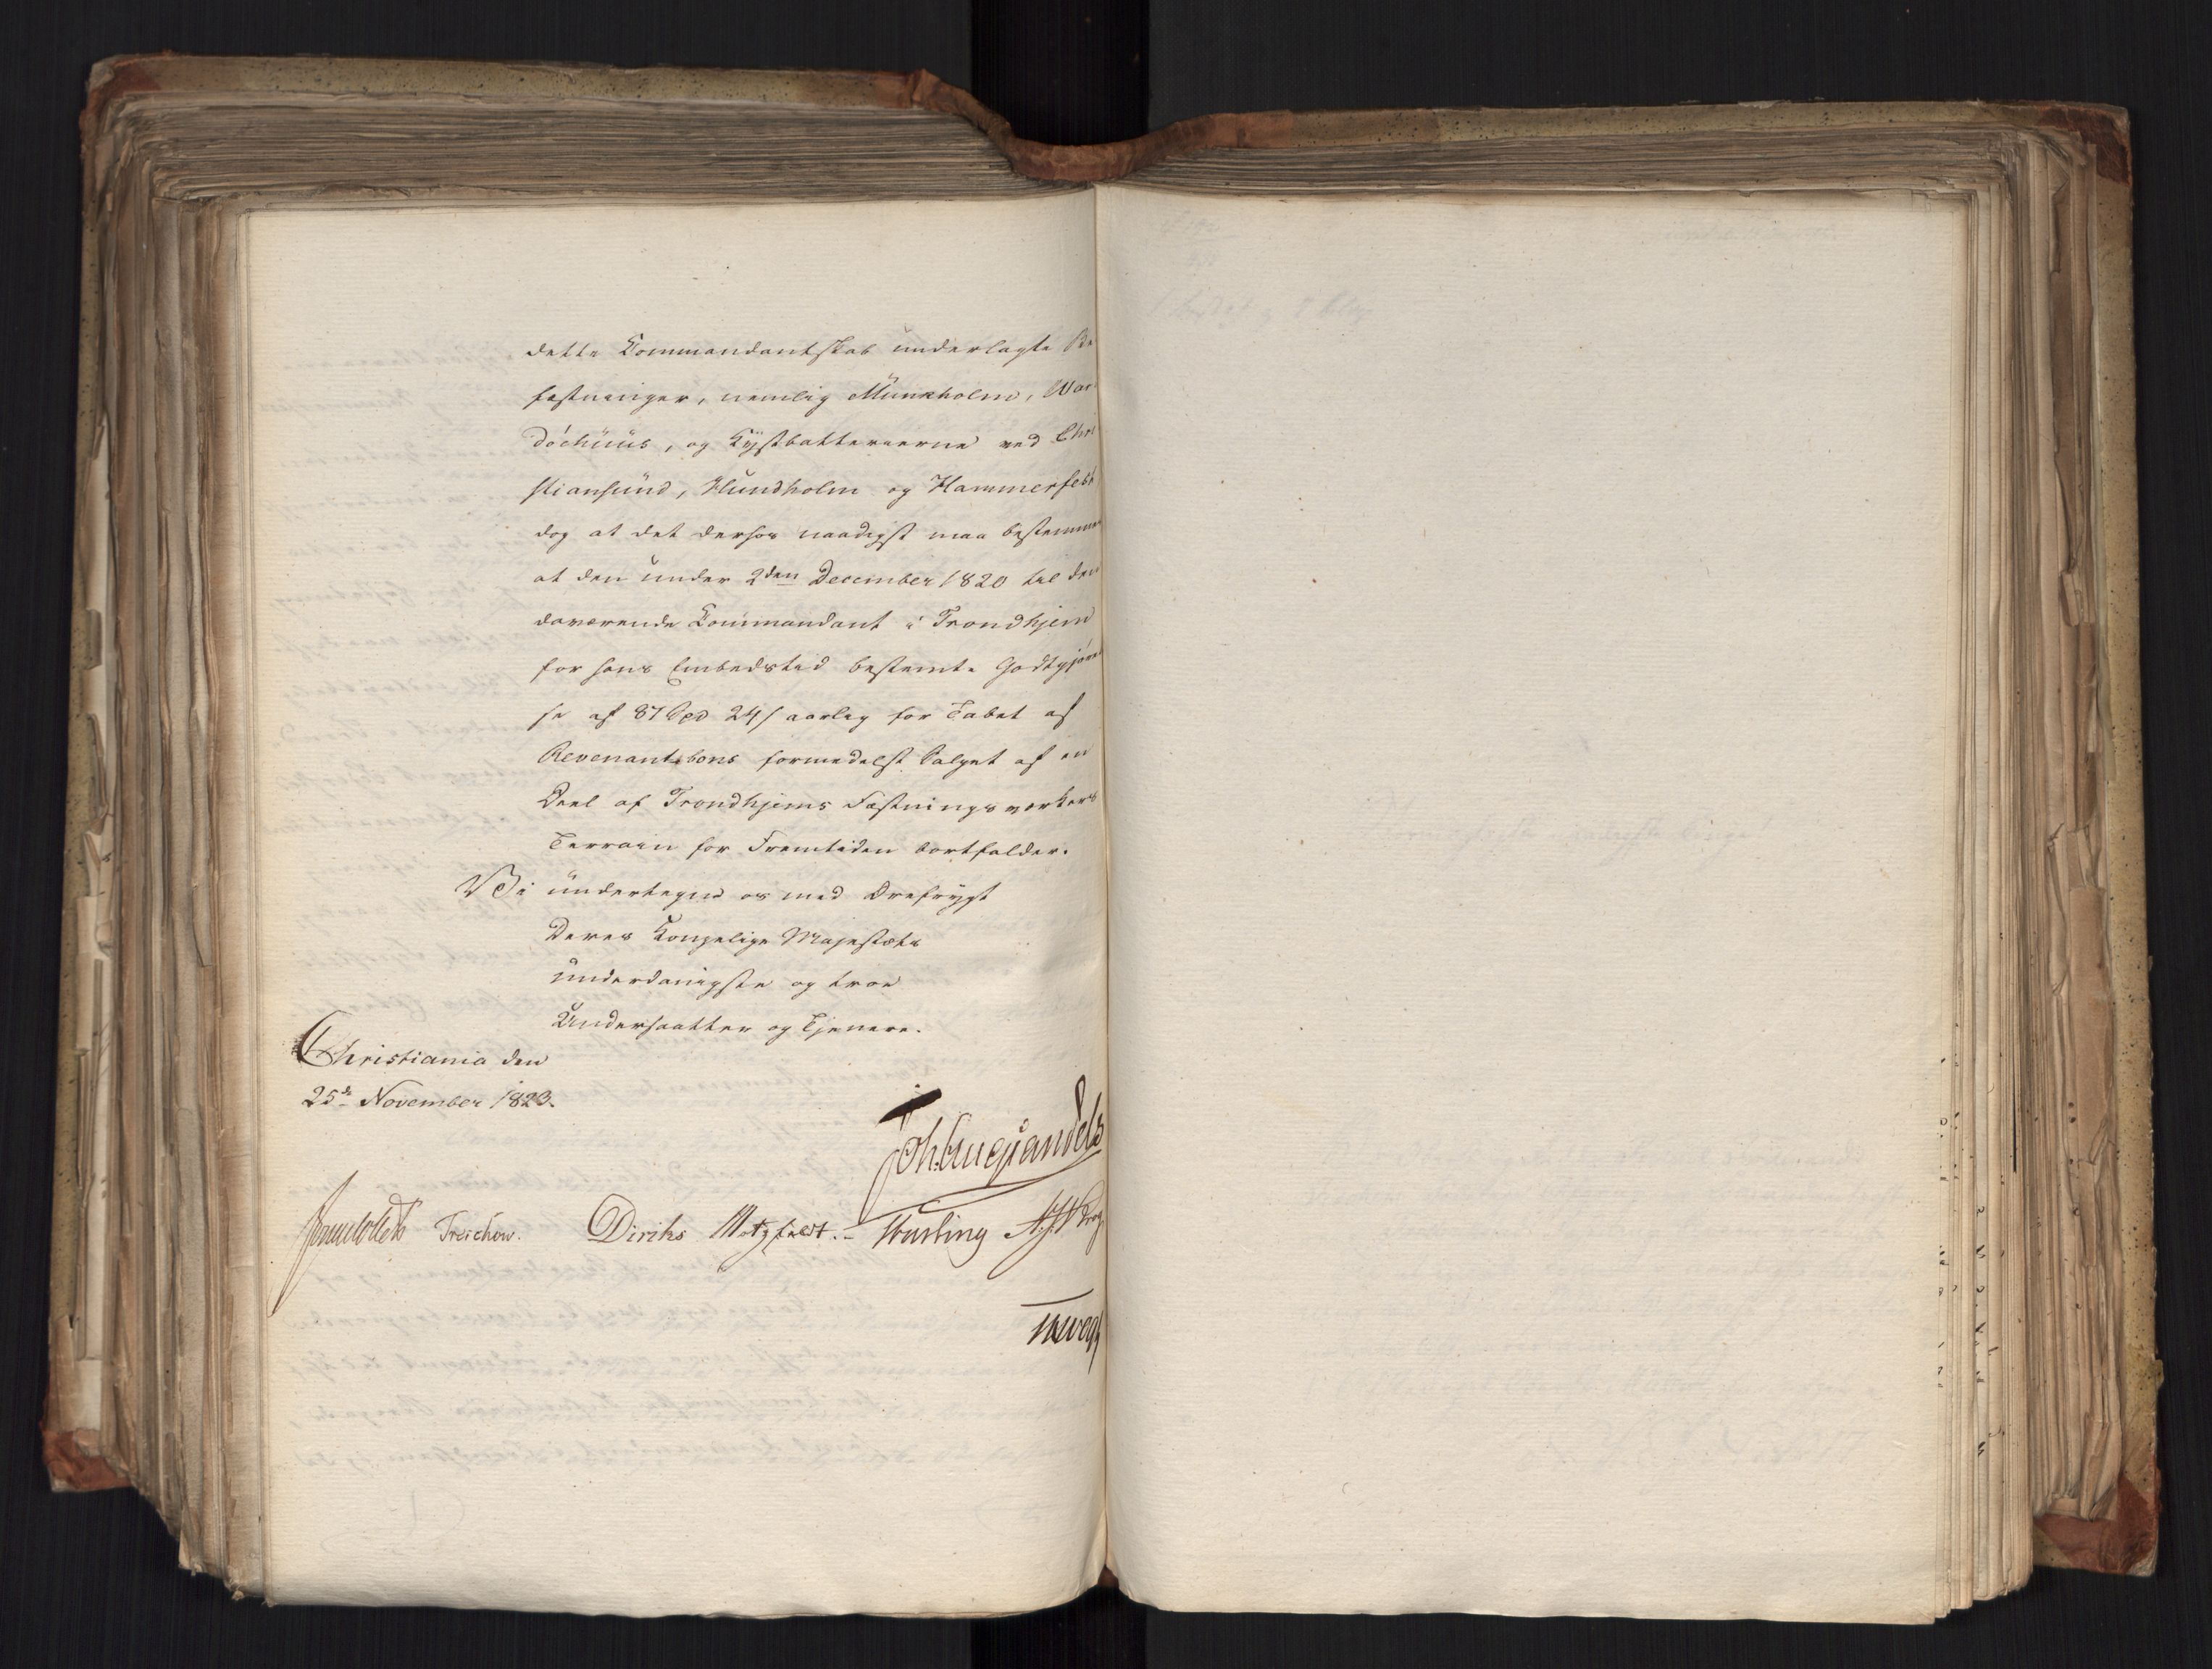 dette Commandantskab underlagte Be
fæstninger, nemlig Munkholm, War
döehuus, og Kystbatterierne ved Chri
stiansund, Hundholm og Hammerfest
dog at det derhos naadigst maa bestemmes
at den under 2den December 1820 til den
daværende Commandant i Trondhjem
for hans Embedstid bestemte Godtgjörel
se af 87 Spd 24 s aarlig for Tabet af
Revenantsbons formedelst Salget af en
Deel af Trondhjems Fæstningsværkers
Terrain for Fremtiden bortfalder.
Vi undertegne os med Ærefrygt
Deres Kongelige Majestæts
underdanigste og troe
Undersaatter og Tjenere.
Christiania den
25de November 1823.
Joh. Aug. Sandels
Sommerhielm Treschow. Diriks Motzfeldt. Fasting